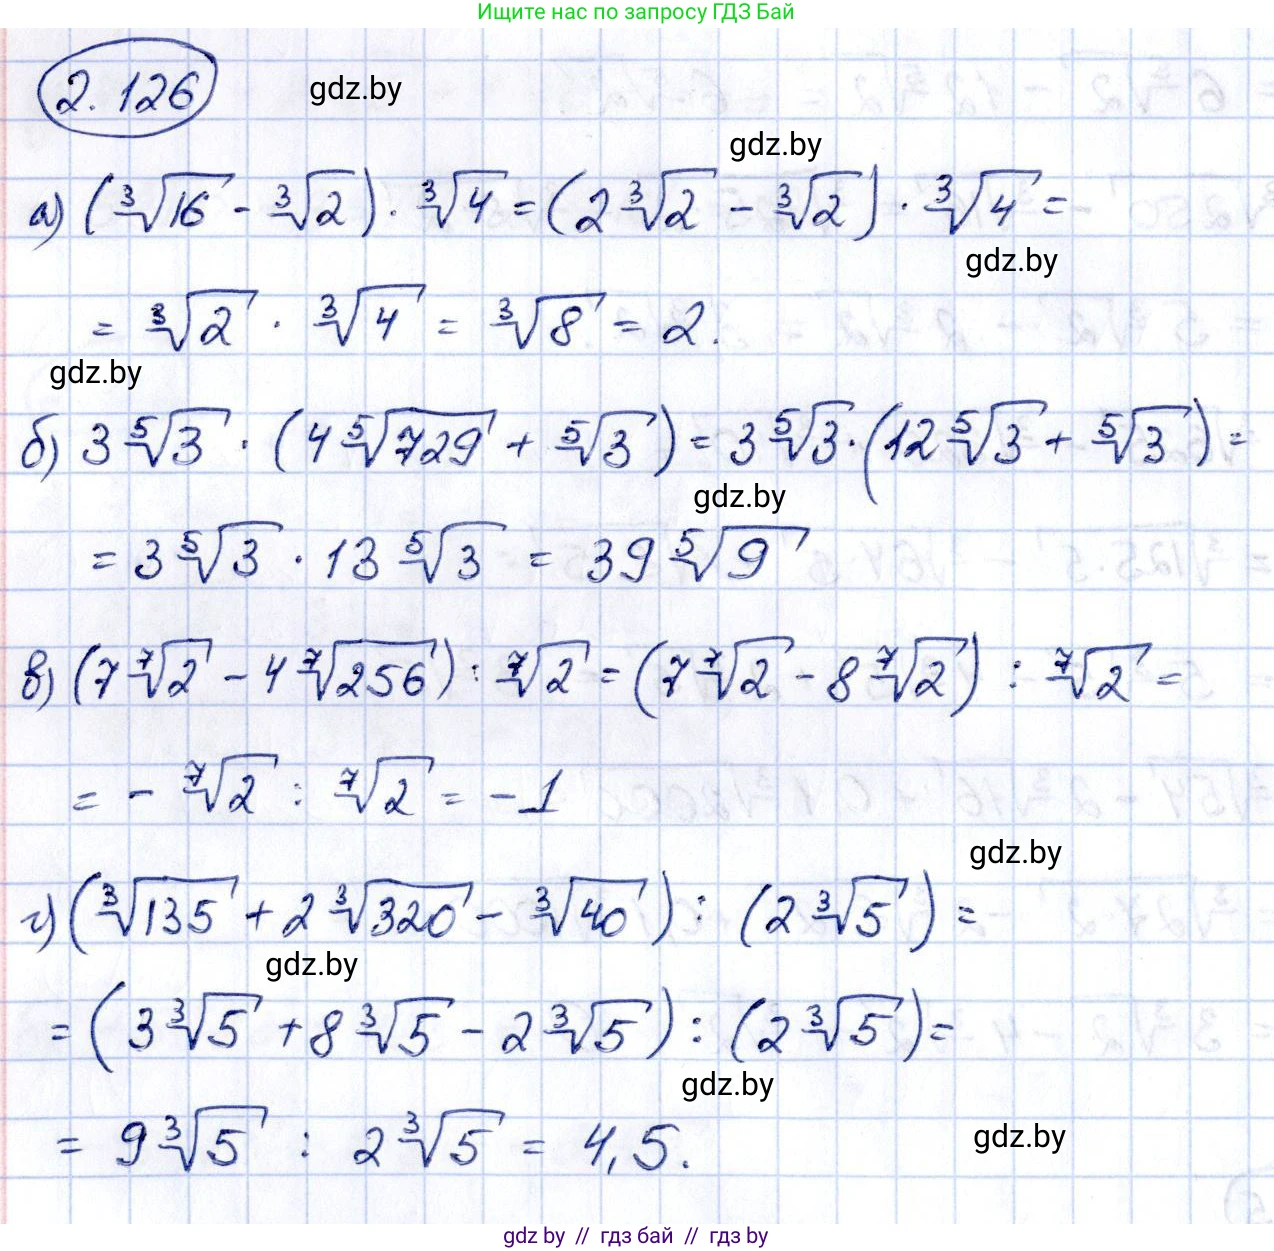 Ищите нас по запросу ГДЗ Бай
2.126
gdz.by
gdz.by
а) (∛16 - ∛2) · ∛4 = (2∛2 - ∛2) · ∛4 =
gdz.by
= ∛2 · ∛4 = ∛8 = 2.
gdz.by
б) 3⁵√3 · (4⁵√729 + ⁵√3) = 3⁵√3 · (12⁵√3 + ⁵√3) =
gdz.by
= 3⁵√3 · 13⁵√3 = 39⁵√9
в) (7⁷√2 - 4⁷√256) : ⁷√2 = (7⁷√2 - 8⁷√2) : ⁷√2 =
= - ⁷√2 : ⁷√2 = -1
gdz.by
г) (∛135 + 2∛320 - ∛40) : (2∛5) =
gdz.by
= (3∛5 + 8∛5 - 2∛5) : (2∛5) =
gdz.by
= 9∛5 : 2∛5 = 4,5.
gdz.by
gdz by // гдз бай // гдз by